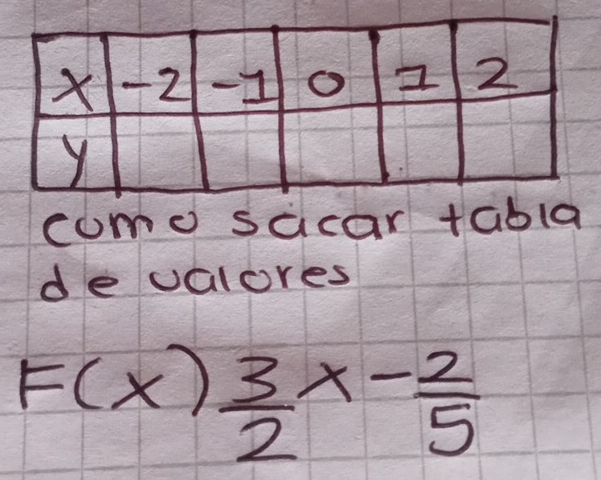 x -2 -1 0 1 2
y
como sacar tabla
de valores
F(x) 3/2 x - 2/5